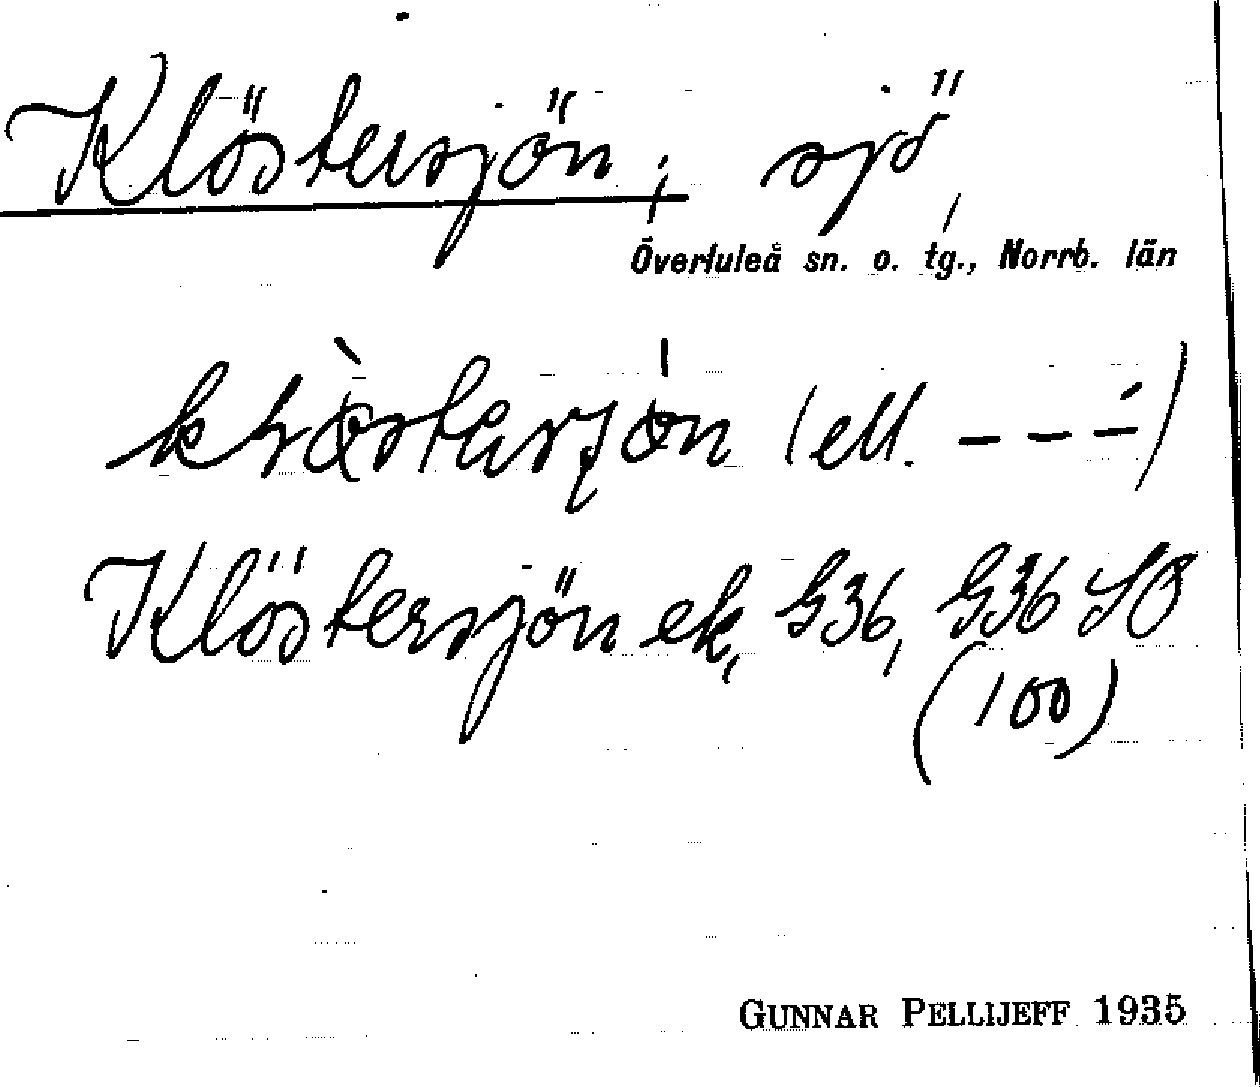 Klöstersjön; sjö,
Överluleå sn. o. tg., Norrb. län
(ell. – – –́)
Klöstersjön ek, G36, G36 SO
(100)
GUNNAR PELLIJEFF 1935